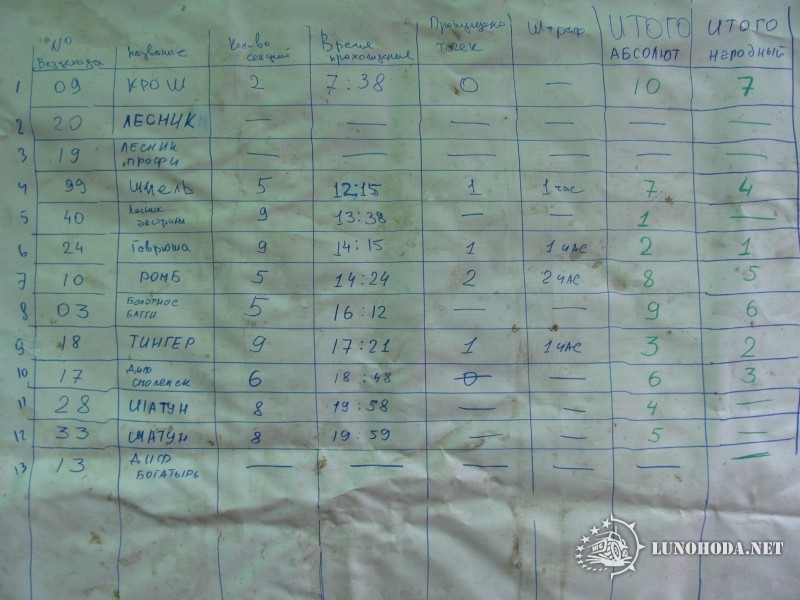 № вездехода название Кол-во секций Время прохождения Пропущено точек Штраф ИТОГО АБСОЛЮТ ИТОГО народный
1 09 КРОШ 2 7:38 0 — 10 7
2 20 ЛЕСНИК — — — — — —
3 19 ЛЕСНИК ПРОФИ — — — — — —
4 99 ШМЕЛЬ 5 12:15 1 1 час 7 4
5 40 Лесник 9 13:38 — — 1 —
6 24 Гаврюша 9 14:15 1 1 ЧАС 2 1
7 10 РОМБ 5 14:24 2 2 ЧАС 8 5
8 03 БОЛОТНОЕ БАГГИ 5 16:12 — — 9 6
9 18 ТИНГЕР 9 17:21 1 1 ЧАС 3 2
10 17 ДИФ СМОЛЕНСК 6 18:48 0 — 6 3
11 28 ШАТУН 8 19:58 — — 4 —
12 33 ШАТУН 8 19:59 — — 5 —
13 13 ДИФ БОГАТЫРЬ — — — — — —
LUNOHODA.NET